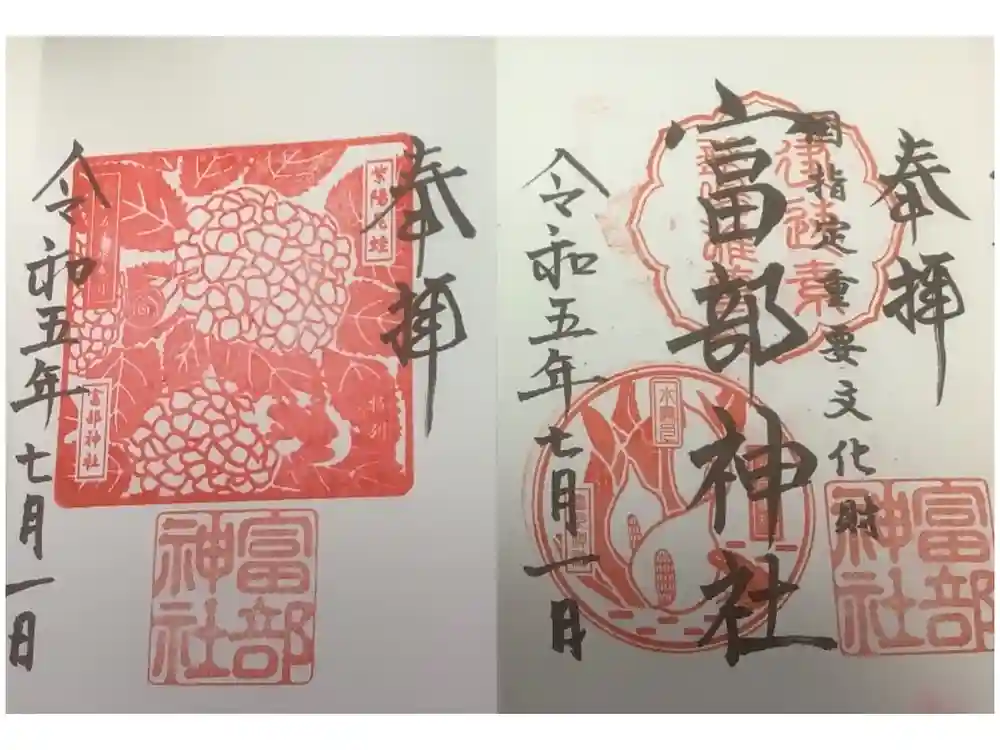 奉拝
紫陽花蛙
富部神社
令和五年七月一日
富部
神社
奉拝
国指定重要文化財
富部神社
令和五年七月一日
富部
神社